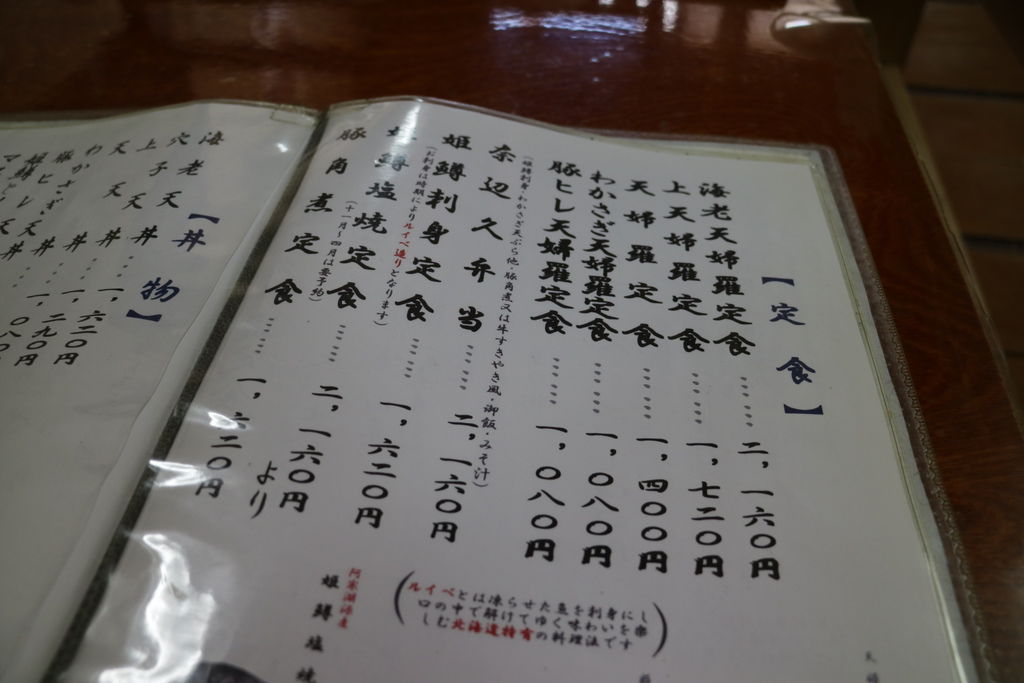 【定食】
海老天婦羅定食……二,一六〇円
上天婦羅定食……一,七二〇円
天婦羅定食……一,四〇〇円
わかさぎ天婦羅定食……一,〇八〇円
豚ヒレ天婦羅定食……一,〇八〇円
奈辺久弁当……二,一六〇円
(姫鱒刺身・わかさぎ天ぷら他・豚角煮又は牛すきやき風・御飯・みそ汁)
姫鱒刺身定食……一,六二〇円
(お刺身は時期によりルイベ造りとなります)
鱒塩焼定食……二,一六〇円より
(十一月〜四月は要予約)
豚角煮定食……一,六二〇円
(ルイベとは凍らせた魚を刺身にし
口の中で解けてゆく味わいを楽
しむ北海道特有の料理法です)
阿寒湖源産
姫鱒塩焼
【丼物】
海老天丼……一,六二〇円
穴子天丼……一,二九〇円
上天丼
天丼